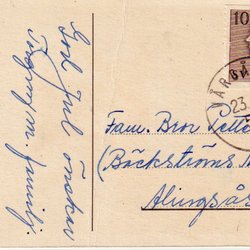 God Jul önskar
Ingrid m. familj
10
VÅRGÅ
23
Fam. Bror Pelle
(Bäckströms
Alingsås